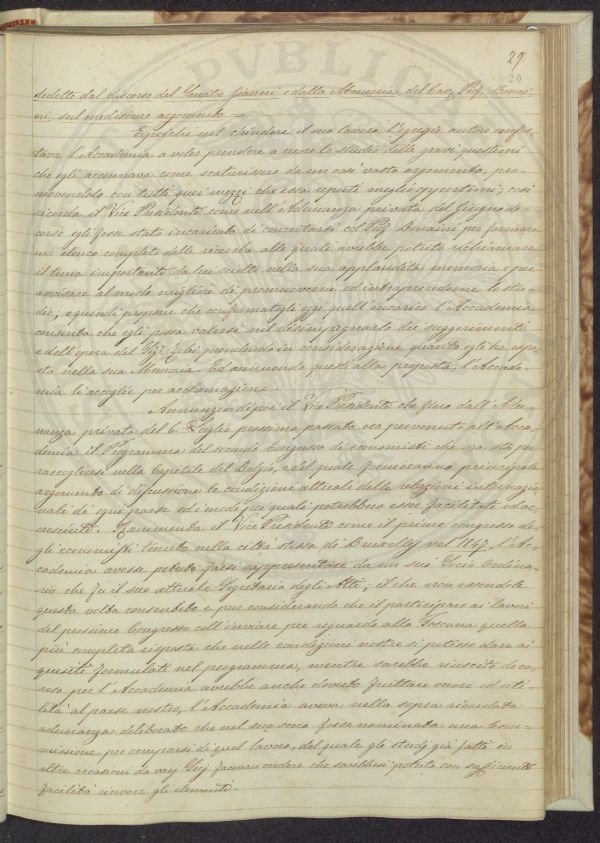 29
20
dedotto dal discorso del Senatore Gianni e dalla Memoria del Cav. Prof. Bonai-
ni sul medesimo argomento =
E poiche nel chiudere il suo lavoro l'egregio autore confor-
tava l'Accademia a voler prendere a cuore lo studio delle gravi questioni
che egli accennava come scaturissero da un così vasto argomento, pro-
movendolo con tutti quei mezzi che essa reputi meglio opportuni; così
ricorda il Vice Presidente come nell'Adunanza privata del Giugno de-
corso egli fosse stato incaricato di concertarsi col Prof. Bonaini per formare
un elenco completo delle ricerche alle quali avrebbe potuto richiamare
il tema importante da lui scelto nella sua applaudita memoria e per
avvisare al modo migliore di promuoverne ed intraprenderne lo stu-
dio; e quindi propone che confermatogli oggi quell'incarico l'Accademia
consenta che egli possa valersi nel disimpegnarlo dei suggerimenti
e dell'opera del prendendo in considerazione quanto egli ha espo-
sto nella sua Memoria. Ed annuendo questi alla proposta, l'Accade-
mia li accoglie per acclamazione.
Annunzia dipoi il Vice Presidente che fino dall'Adu-
nanza privata del 6 Luglio prossimo passato era pervenuto all'Acca-
demia il Programma del secondo Congresso di economisti che ora sta per
raccogliersi nella Capitale del Belgio, e del quale formeranno principale
argomento di discussione le condizioni attuali delle relazioni internazio-
nali de' ogni paese ed i modi pei quali potrebbero esser facilitate ed ac-
cresciute. Rammenta il Vice Presidente come il primo congresso de-
gli economisti tenuto nella città stessa di Bruxelles nel 1847, l'Ac-
cademia avesse potuto farsi rappresentare da un suo Socio ordina-
rio che fu il suo attuale Segretario degli Atti; il che non essendole
questa volta consentito e pur considerando che il partecipare ai lavori
del prossimo Congresso coll'inviare per riguardo alla Toscana quella
più completa risposta che nelle condizioni nostre si potesse dare ai
quesiti formulati nel programma, mentre sarebbe riuscito deco-
roso per l'Accademia avrebbe anche dovuto fruttare onore ed uti-
lità al paese nostro, l'Accademia aveva nella sopra ricordata
adunanza deliberato che nel suo seno fosse nominata una Com-
missione per occuparsi di quel lavoro, del quale gli studj già fatti in
altre occasioni da varj Socj facevan credere che sarebbesi potuto con sufficiente
facilità ricevere gli elementi.